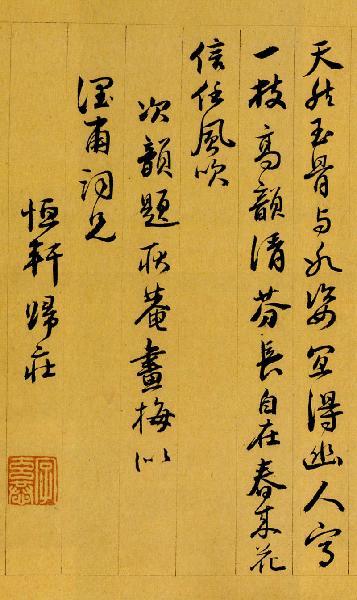 天然玉骨与冰姿宜得幽人写
一枝高韻清芬長自在春来花
信任风吹
次韻題秋菴畫梅似
溼甫詞兄
恒軒歸莊